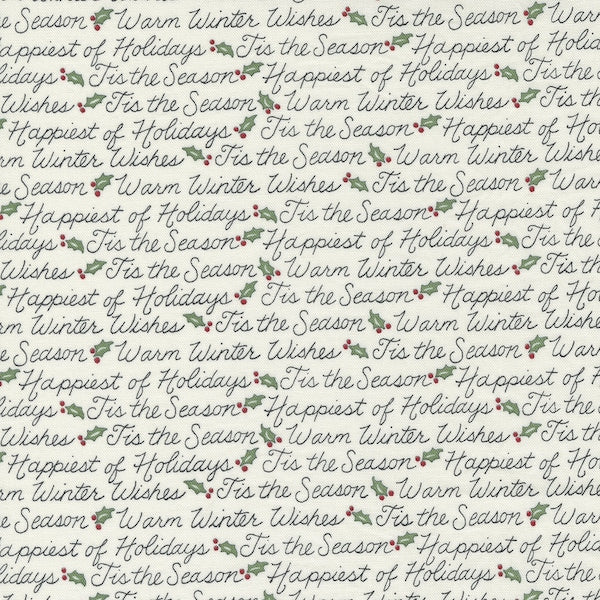 the Season Warm Winter Wishes Tis the Season Warm
appiest of Holidays Tis the Season Happiest of Holida
lidays Tis the Season Happiest of Holidays Tis the
Wishes Tis the Season Warm Winter Wishes Tis the
Happiest of Holidays Tis the Season Happiest of Ho
rm Winter Wishes Tis the Season Warm Winter Wishes
Season Warm Winter Wishes Tis the Season Warm
Happiest of Holidays Tis the Season Happiest of H
lidays Tis the Season Happiest of Holidays Tis the
Wishes Tis the Season Warm Winter Wishes Tis the
Happiest of Holidays Tis the Season Happiest of Ho
rm Winter Wishes Tis the Season Warm Winter Wishes
Season Warm Winter Wishes Tis the Season Warm
Happiest of Holidays Tis the Season Happiest of H
lidays Tis the Season Happiest of Holidays Tis the
Wishes Tis the Season Warm Winter Wishes Tis the
Happiest of Holidays Tis the Season Happiest of Ho
rm Winter Wishes Tis the Season Warm Winter Wishes
Season Warm Winter Wishes Tis the Season Warm
appiest of Holidays Tis the Season Happiest of Ho
lidays Tis the Season Happiest of Holidays Tis the